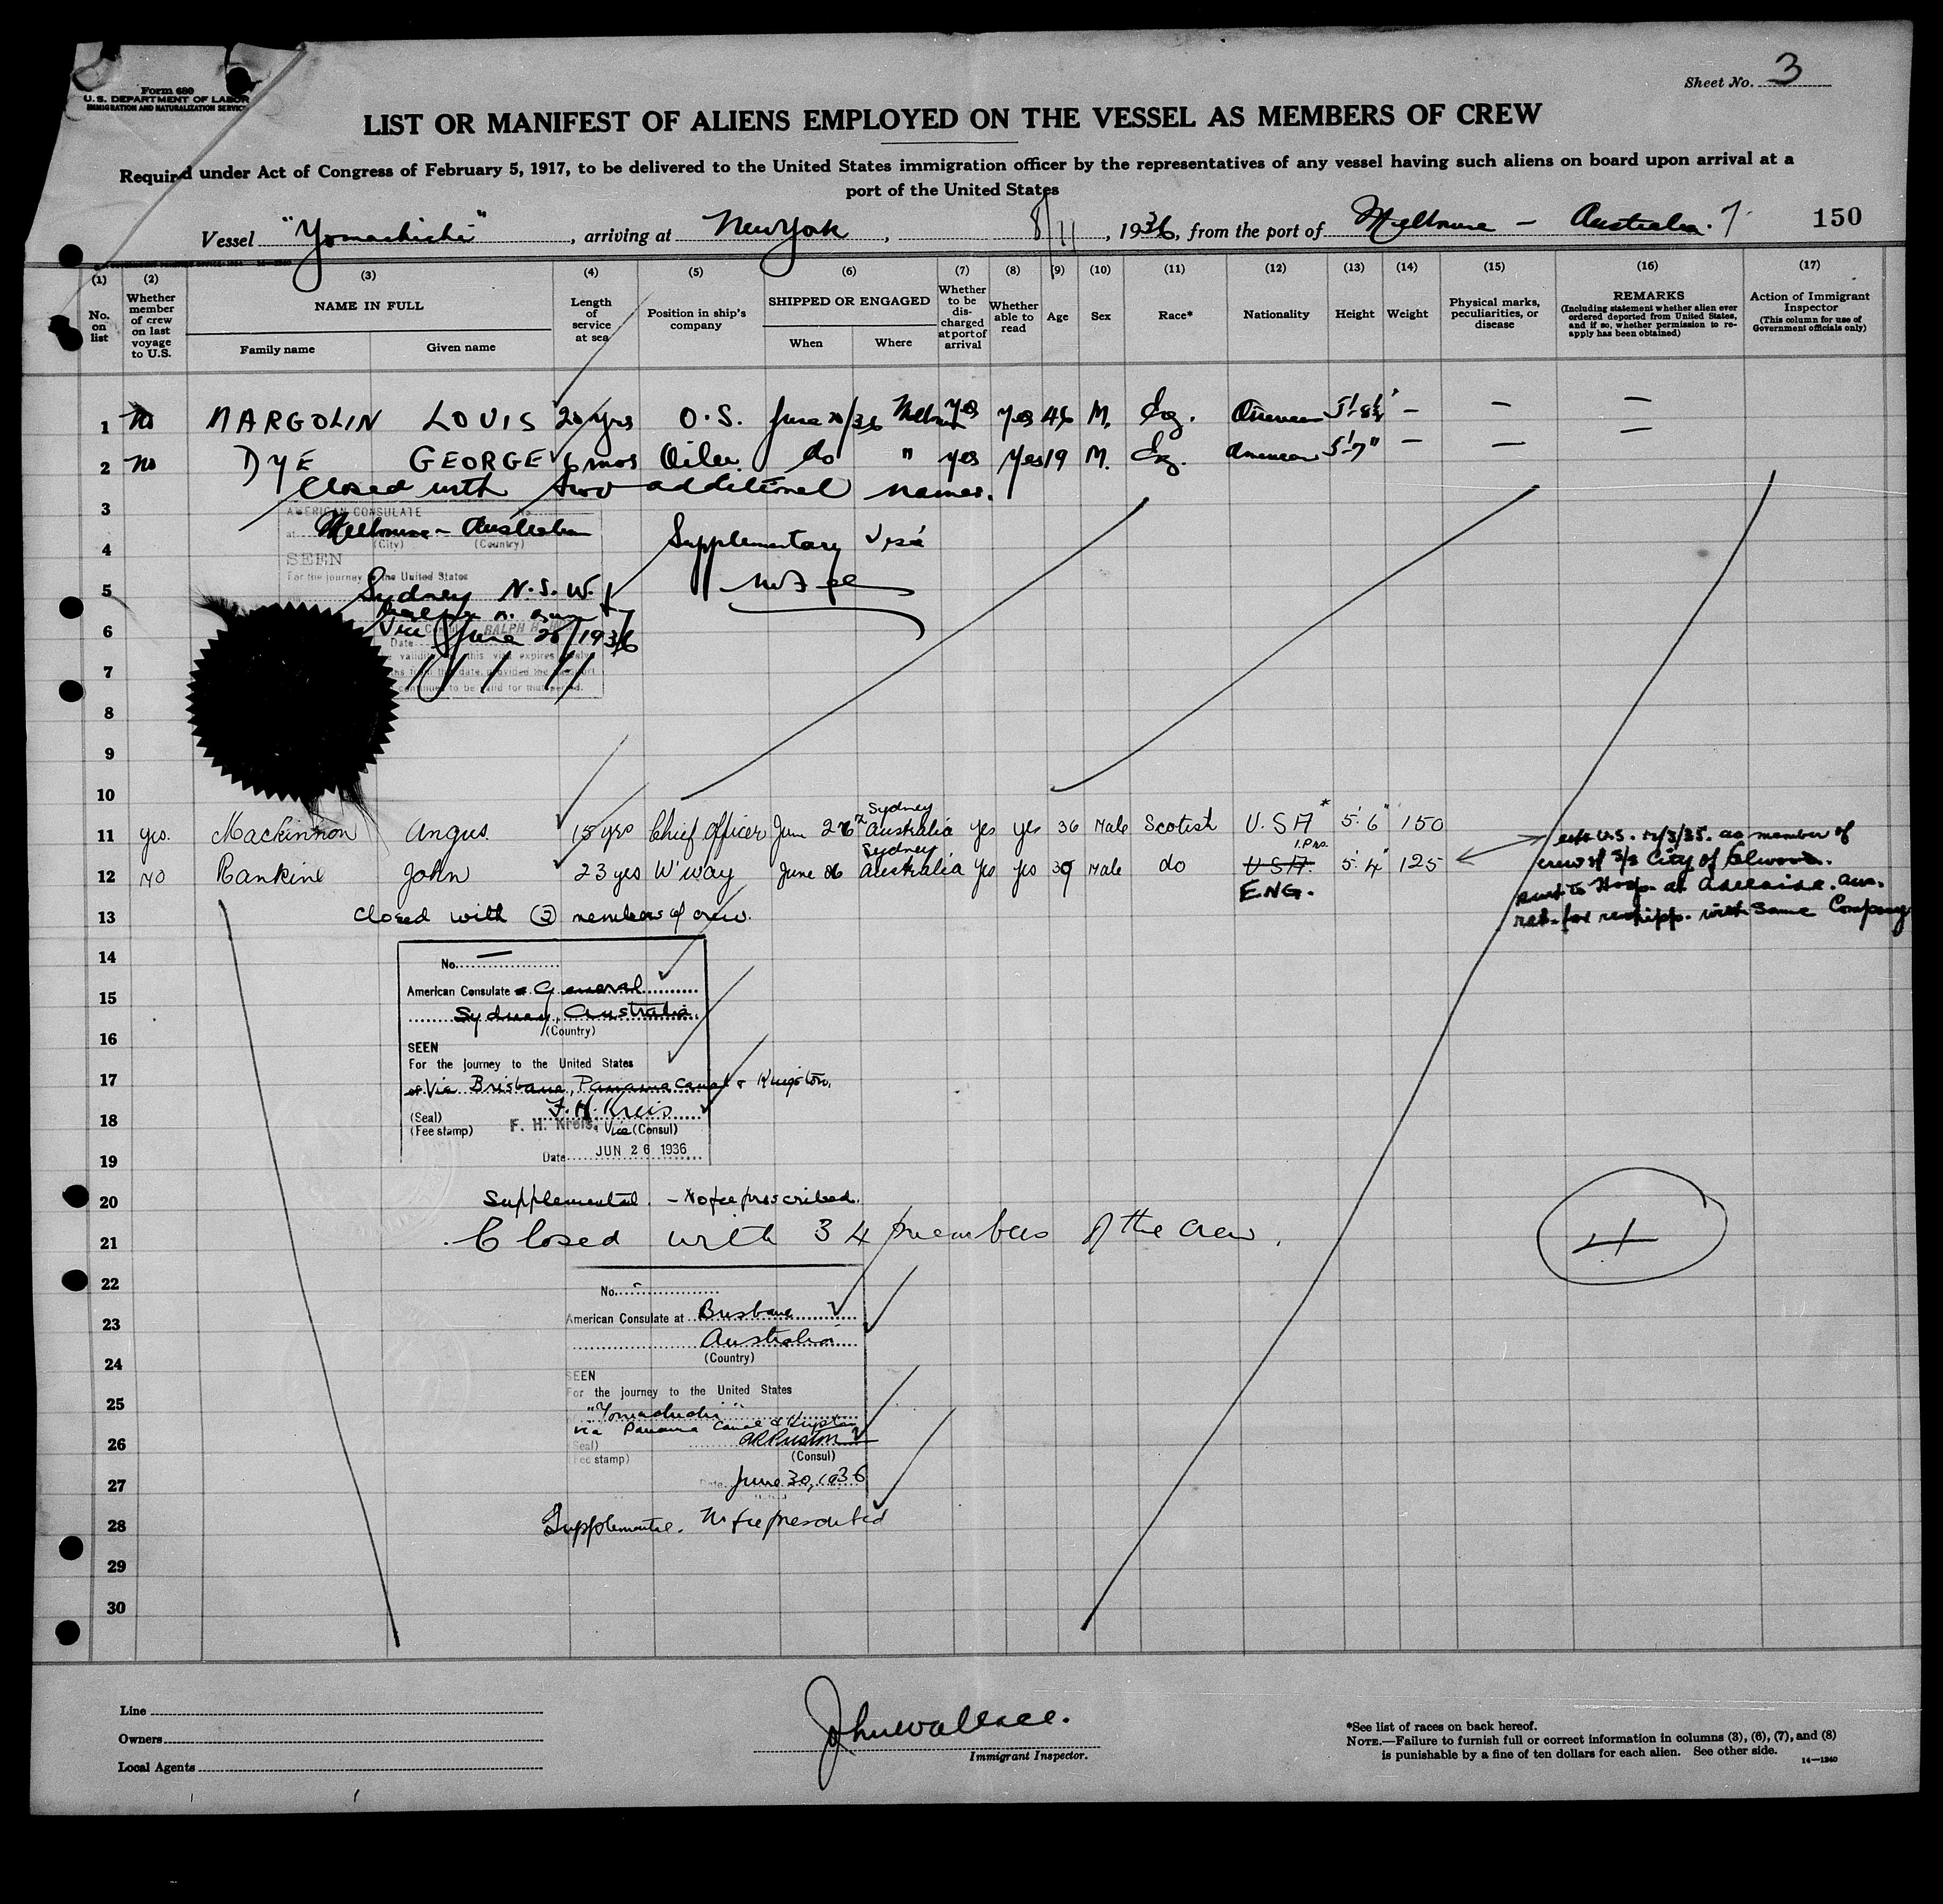 Form 680
U.S. DEPARTMENT OF LABOR
IMMIGRATION AND NATURALIZATION SERVICE
Sheet No. 3
LIST OR MANIFEST OF ALIENS EMPLOYED ON THE VESSEL AS MEMBERS OF CREW
Required under Act of Congress of February 5, 1917, to be delivered to the United States immigration officer by the representatives of any vessel having such aliens on board upon arrival at a
port of the United States
Vessel "Yomachichi", arriving at New York, 8/11, 1936, from the port of Melbourne - Australia. 7 150
(1) (2) (3) (4) (5) (6) (7) (8) (9) (10) (11) (12) (13) (14) (15) (16) (17)
No. on list
Whether member of crew on last voyage to U.S.
NAME IN FULL
Family name Given name
Length of service at sea
Position in ship's company
SHIPPED OR ENGAGED
When Where
Whether to be discharged at port of arrival
Whether able to read
Age
Sex
Race*
Nationality
Height
Weight
Physical marks, peculiarities, or disease
REMARKS
(Including statement whether alien ever ordered deported from United States, and if so, whether permission to reapply has been obtained)
Action of Immigrant Inspector
(This column for use of Government officials only)
1 No MARGOLIN LOUIS 20 yrs O.S. June 20/36 Melb yes yes 46 M. Eng. American 5'-8½" — — —
2 No DYE GEORGE 6 mos Oiler do " yes yes 19 M. Eng. American 5'-7" — — —
Closed with two additional names.
3
AMERICAN CONSULATE No.
at Melbourne - Australia
(City) (Country)
4
Supplementary Visa
SEEN
For the journey to the United States
5
Sydney N.S.W.
6
Vice Consul RALPH H.
Date June 20/1936
7
8
9
10
11 yes. Mackinnon Angus 15 yrs Chief Officer June 26 Sydney Australia yes yes 36 Male Scotish U.S.A* 5'6" 150
12 NO Rankine John 23 yrs W'way June 26 Sydney Australia yes yes 39 Male do U.S.A. 5'4" 125
ENG.
as member of
crew of S/S City of Elwood.
sent to Hosp. at Adelaide. Aus.
with same Company
13 Closed with (2) members of crew.
14 No. —
15 American Consulate General
Sydney, Australia
(Country)
16
SEEN
For the journey to the United States
17 Via Brisbane, Panama Canal & Kingston.
F.H. Kreis
(Seal)
18 (Fee stamp) F. H. Kreis, Vice (Consul)
19 Date JUN 26 1936
20 Supplemental. - No fee prescribed.
21 Closed with 34 members of the crew.
4
22 No.
23 American Consulate at Brisbane
Australia
24 (Country)
SEEN
25 For the journey to the United States
"Yomachichi"
via Panama Canal & Kingston
26 (Seal)
(Fee stamp) (Consul)
27 Date June 30, 1936
28 Supplemental. No fee prescribed
29
30
Line
Owners
Local Agents
John Wallace.
Immigrant Inspector.
*See list of races on back hereof.
NOTE.—Failure to furnish full or correct information in columns (3), (6), (7), and (8)
is punishable by a fine of ten dollars for each alien. See other side.
14—1240